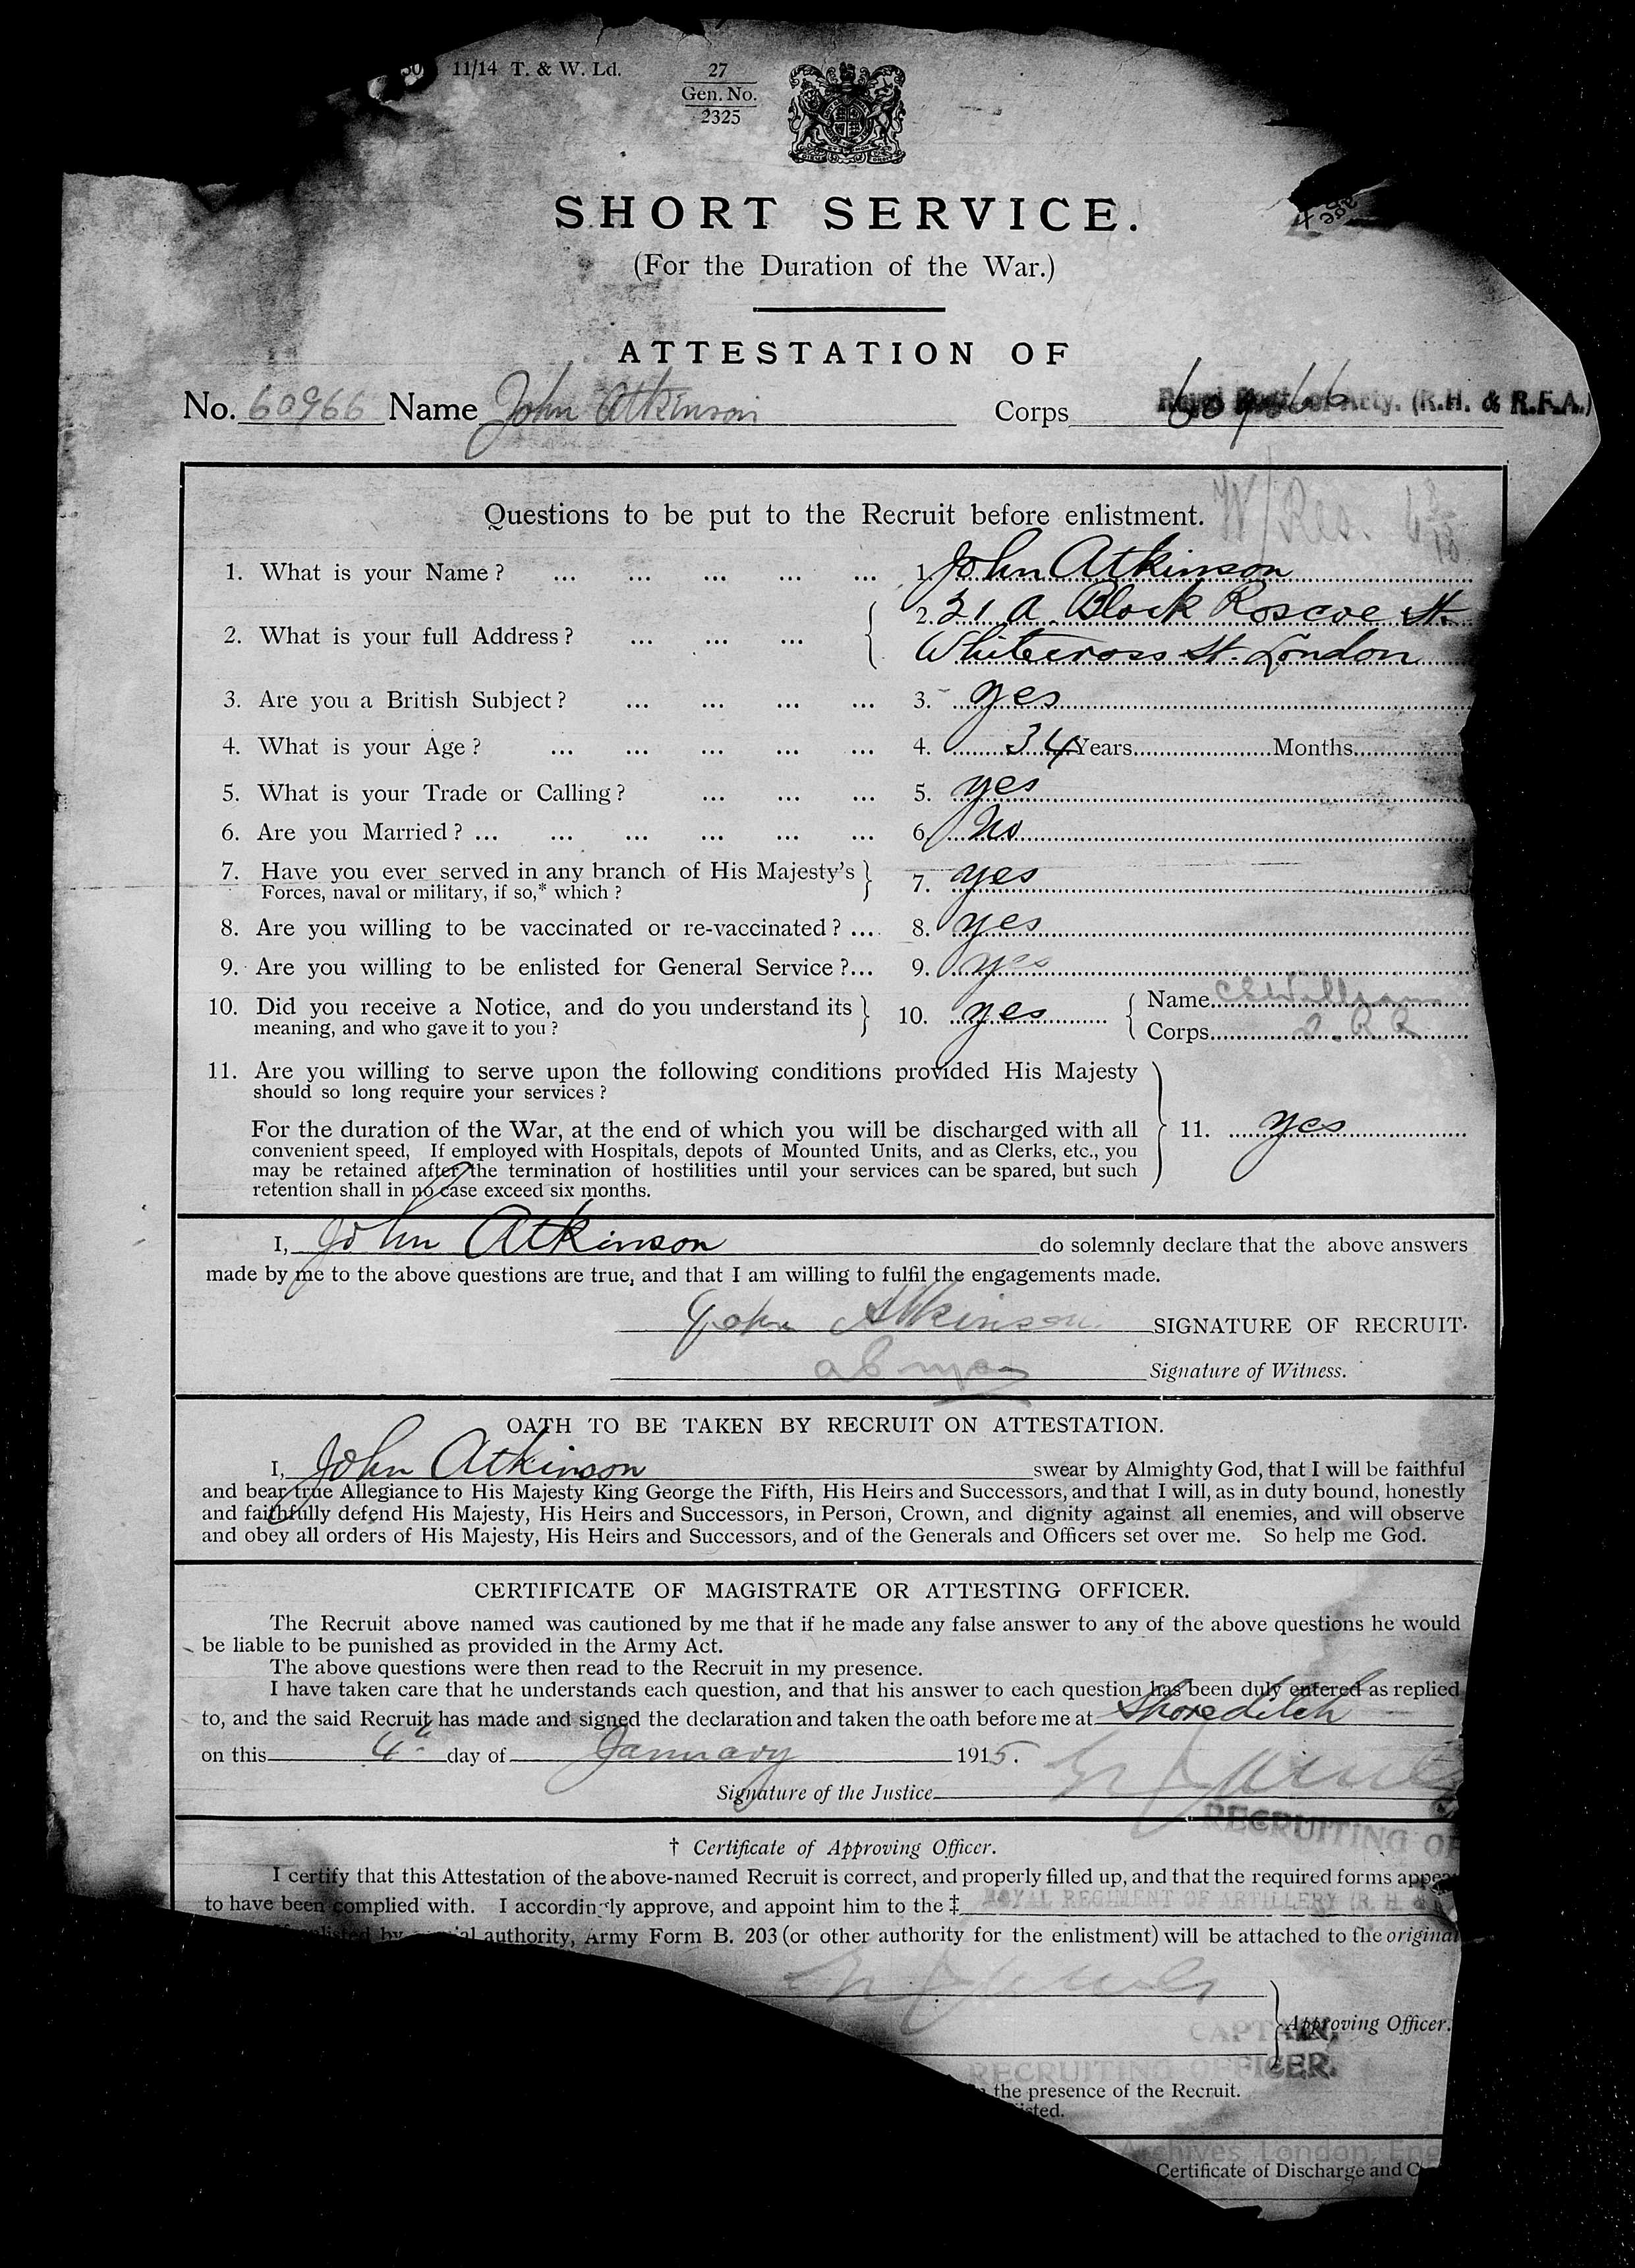 11/14 T. & W. Ld.
27
Gen. No.
2325
SHORT SERVICE.
(For the Duration of the War.)
ATTESTATION OF
No. 60966 Name John Atkinson Corps Royal Regt. of Arty. (R.H. & R.F.A.) 60966
Questions to be put to the Recruit before enlistment. W/Res.
1. What is your Name? ... ... ... ... ... 1. John Atkinson
2. What is your full Address? ... ... ... 2. 31 A. Block Roscoe St.
Whitecross St. London
3. Are you a British Subject? ... ... ... ... 3. yes
4. What is your Age? ... ... ... ... ... 4. 34 Years Months
5. What is your Trade or Calling? ... ... ... 5. yes
6. Are you Married? ... ... ... ... ... ... 6. No
7. Have you ever served in any branch of His Majesty's
Forces, naval or military, if so,* which? 7. yes
8. Are you willing to be vaccinated or re-vaccinated? ... 8. yes
9. Are you willing to be enlisted for General Service?... 9. yes
10. Did you receive a Notice, and do you understand its
meaning, and who gave it to you? 10. yes Name C S Williams
Corps
11. Are you willing to serve upon the following conditions provided His Majesty
should so long require your services?
For the duration of the War, at the end of which you will be discharged with all
convenient speed, If employed with Hospitals, depots of Mounted Units, and as Clerks, etc., you
may be retained after the termination of hostilities until your services can be spared, but such
retention shall in no case exceed six months. 11. yes
I, John Atkinson do solemnly declare that the above answers
made by me to the above questions are true, and that I am willing to fulfil the engagements made.
John Atkinson SIGNATURE OF RECRUIT.
Signature of Witness.
OATH TO BE TAKEN BY RECRUIT ON ATTESTATION.
I, John Atkinson swear by Almighty God, that I will be faithful
and bear true Allegiance to His Majesty King George the Fifth, His Heirs and Successors, and that I will, as in duty bound, honestly
and faithfully defend His Majesty, His Heirs and Successors, in Person, Crown, and dignity against all enemies, and will observe
and obey all orders of His Majesty, His Heirs and Successors, and of the Generals and Officers set over me. So help me God.
CERTIFICATE OF MAGISTRATE OR ATTESTING OFFICER.
The Recruit above named was cautioned by me that if he made any false answer to any of the above questions he would
be liable to be punished as provided in the Army Act.
The above questions were then read to the Recruit in my presence.
I have taken care that he understands each question, and that his answer to each question has been duly entered as replied
to, and the said Recruit has made and signed the declaration and taken the oath before me at Shoreditch
on this 4th day of January 1915.
Signature of the Justice
RECRUITING OF
† Certificate of Approving Officer.
I certify that this Attestation of the above-named Recruit is correct, and properly filled up, and that the required forms appe
to have been complied with. I accordingly approve, and appoint him to the ‡ ROYAL REGIMENT OF ARTILLERY (R. H. &
by authority, Army Form B. 203 (or other authority for the enlistment) will be attached to the original
Approving Officer.
CAPTAIN,
RECRUITING OFFICER.
the presence of the Recruit.
Archives, London, Eng
Certificate of Discharge and